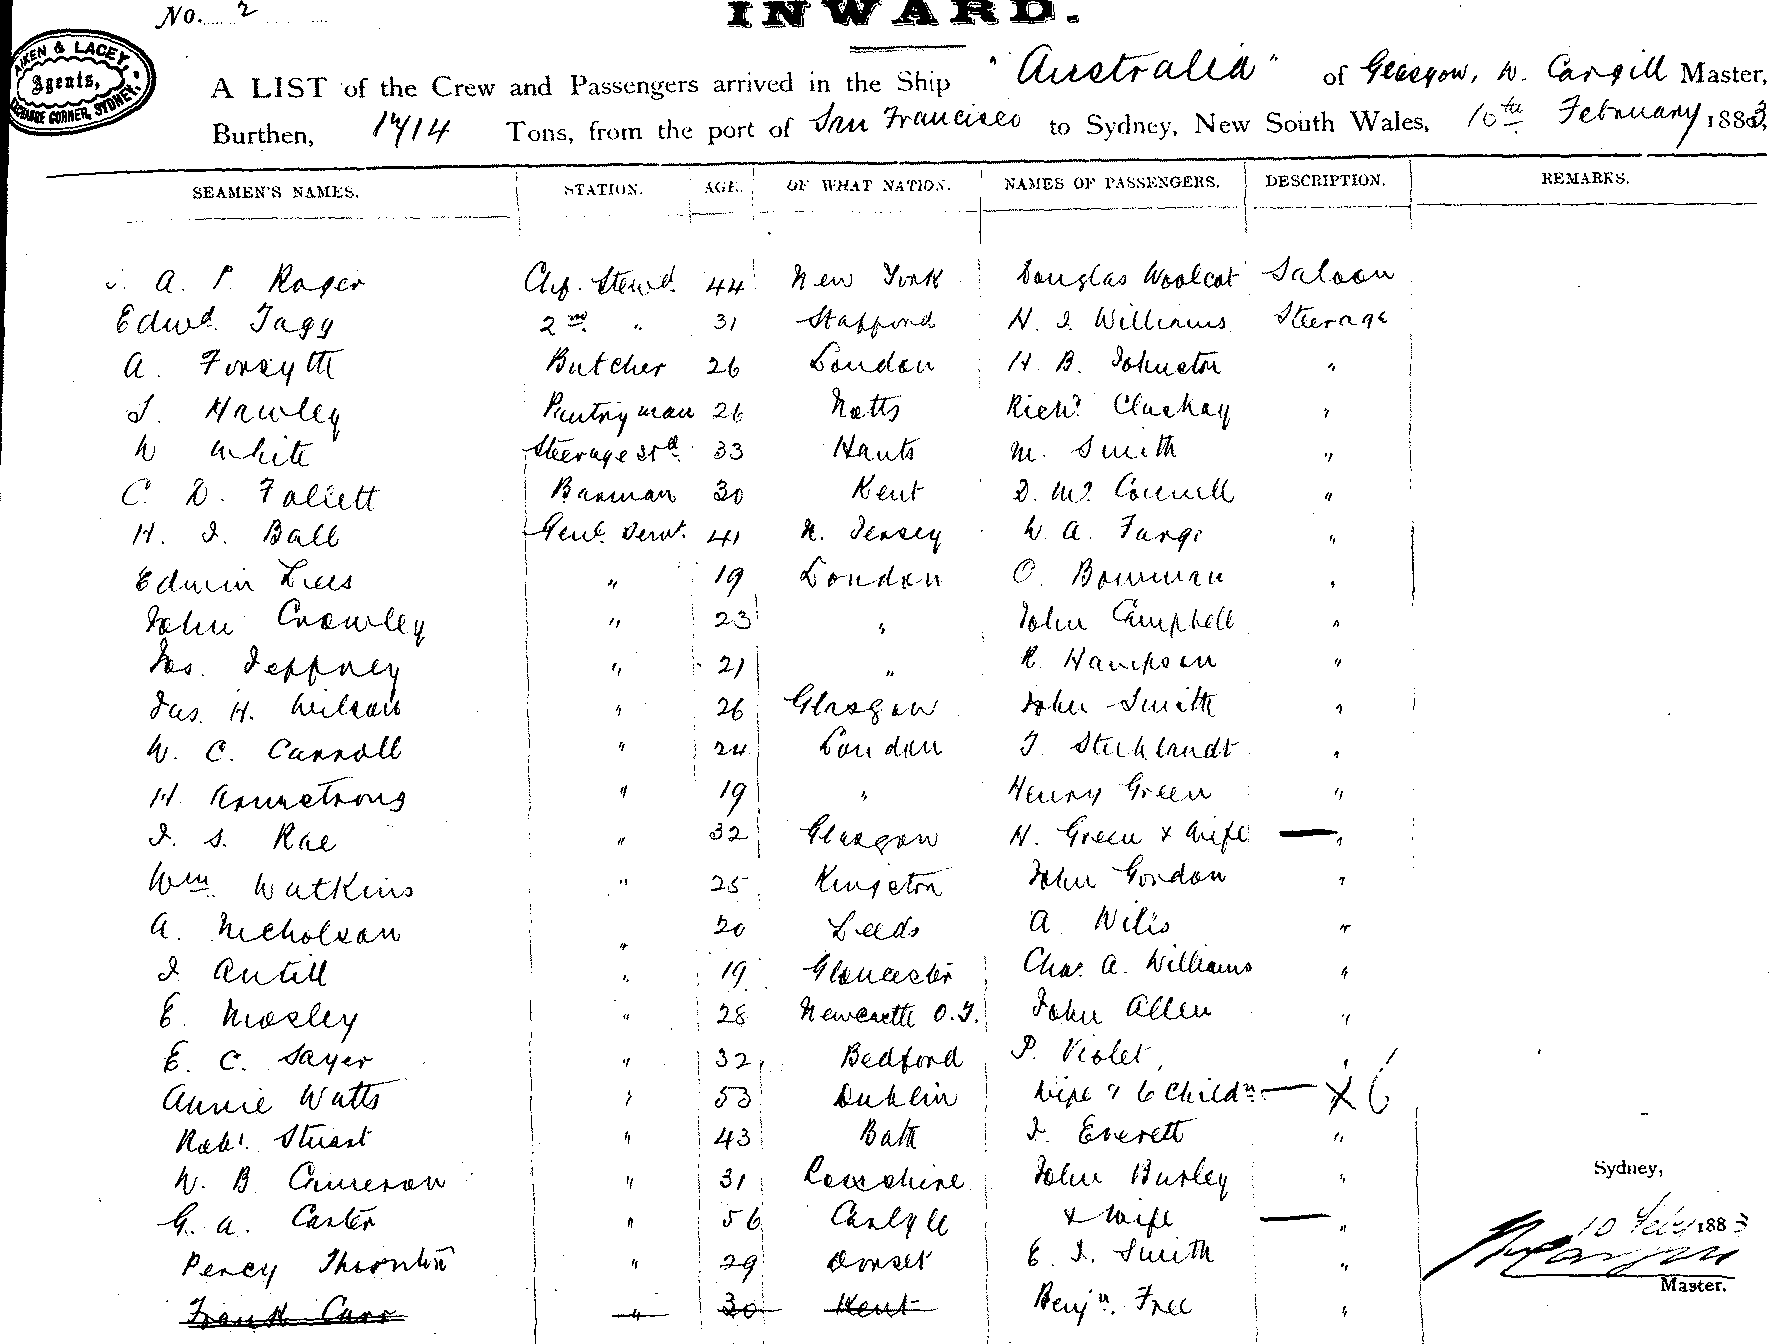 No. 2
INWARD.
AIKEN & LACEY,
Agents,
EXCHANGE CORNER, SYDNEY.
A LIST of the Crew and Passengers arrived in the Ship "Australia" of Glasgow, W. Cargill Master,
Burthen, 1714 Tons, from the port of San Francisco to Sydney, New South Wales, 10th February 1883
SEAMEN'S NAMES. STATION. AGE. OF WHAT NATION. NAMES OF PASSENGERS. DESCRIPTION. REMARKS.
A. P. Roger Chf. Stewd. 44 New York Douglas Woolcot Saloon
Edwd. Tagg 2nd " 31 Stafford H. J. Williams Steerage
A. Forsyth Butcher 26 London H. B. Johnston "
J. Hawley Pantryman 26 Notts Richd. Cluskay "
W White Steerage Std. 33 Hants M. Smith "
C. D. Follett Barman 30 Kent D. McConnell "
H. J. Ball Genl. Servt. 41 N. Jersey W. A. Fargo "
Edwin Lees " 19 London O. Bowman "
John Crowley " 23 " John Campbell "
Jos. Jeffrey " 21 " R. Hampson "
Jas. H. Wilson " 26 Glasgow John Smith "
W. C. Carroll " 24 London J. Stuhlandt "
H. Armstrong " 19 " Henry Green "
J. S. Rae " 32 Glasgow H. Green & Wife — "
Wm. Watkins " 25 Kingston John Gordon "
A. Nicholson " 20 Leeds A Wilis "
J Antill " 19 Gloucester Chas. A. Williams "
E. Mosley " 28 Newcastle O.T. John Allen "
E. C. Sayer " 32 Bedford P. Violet "
Annie Watts " 53 Dublin Wife & 6 Childn — X 6
Robt. Stuart " 43 Bath J. Everett "
W. B Cameron " 31 John Burley "
G. A. Carter " 56 Carlyle & Wife — "
Percy Thornton " 29 Dorset E. J. Smith "
Frank Carr " 30 Kent Benjn. Free "
Sydney,
10 Feby 1883
Master.